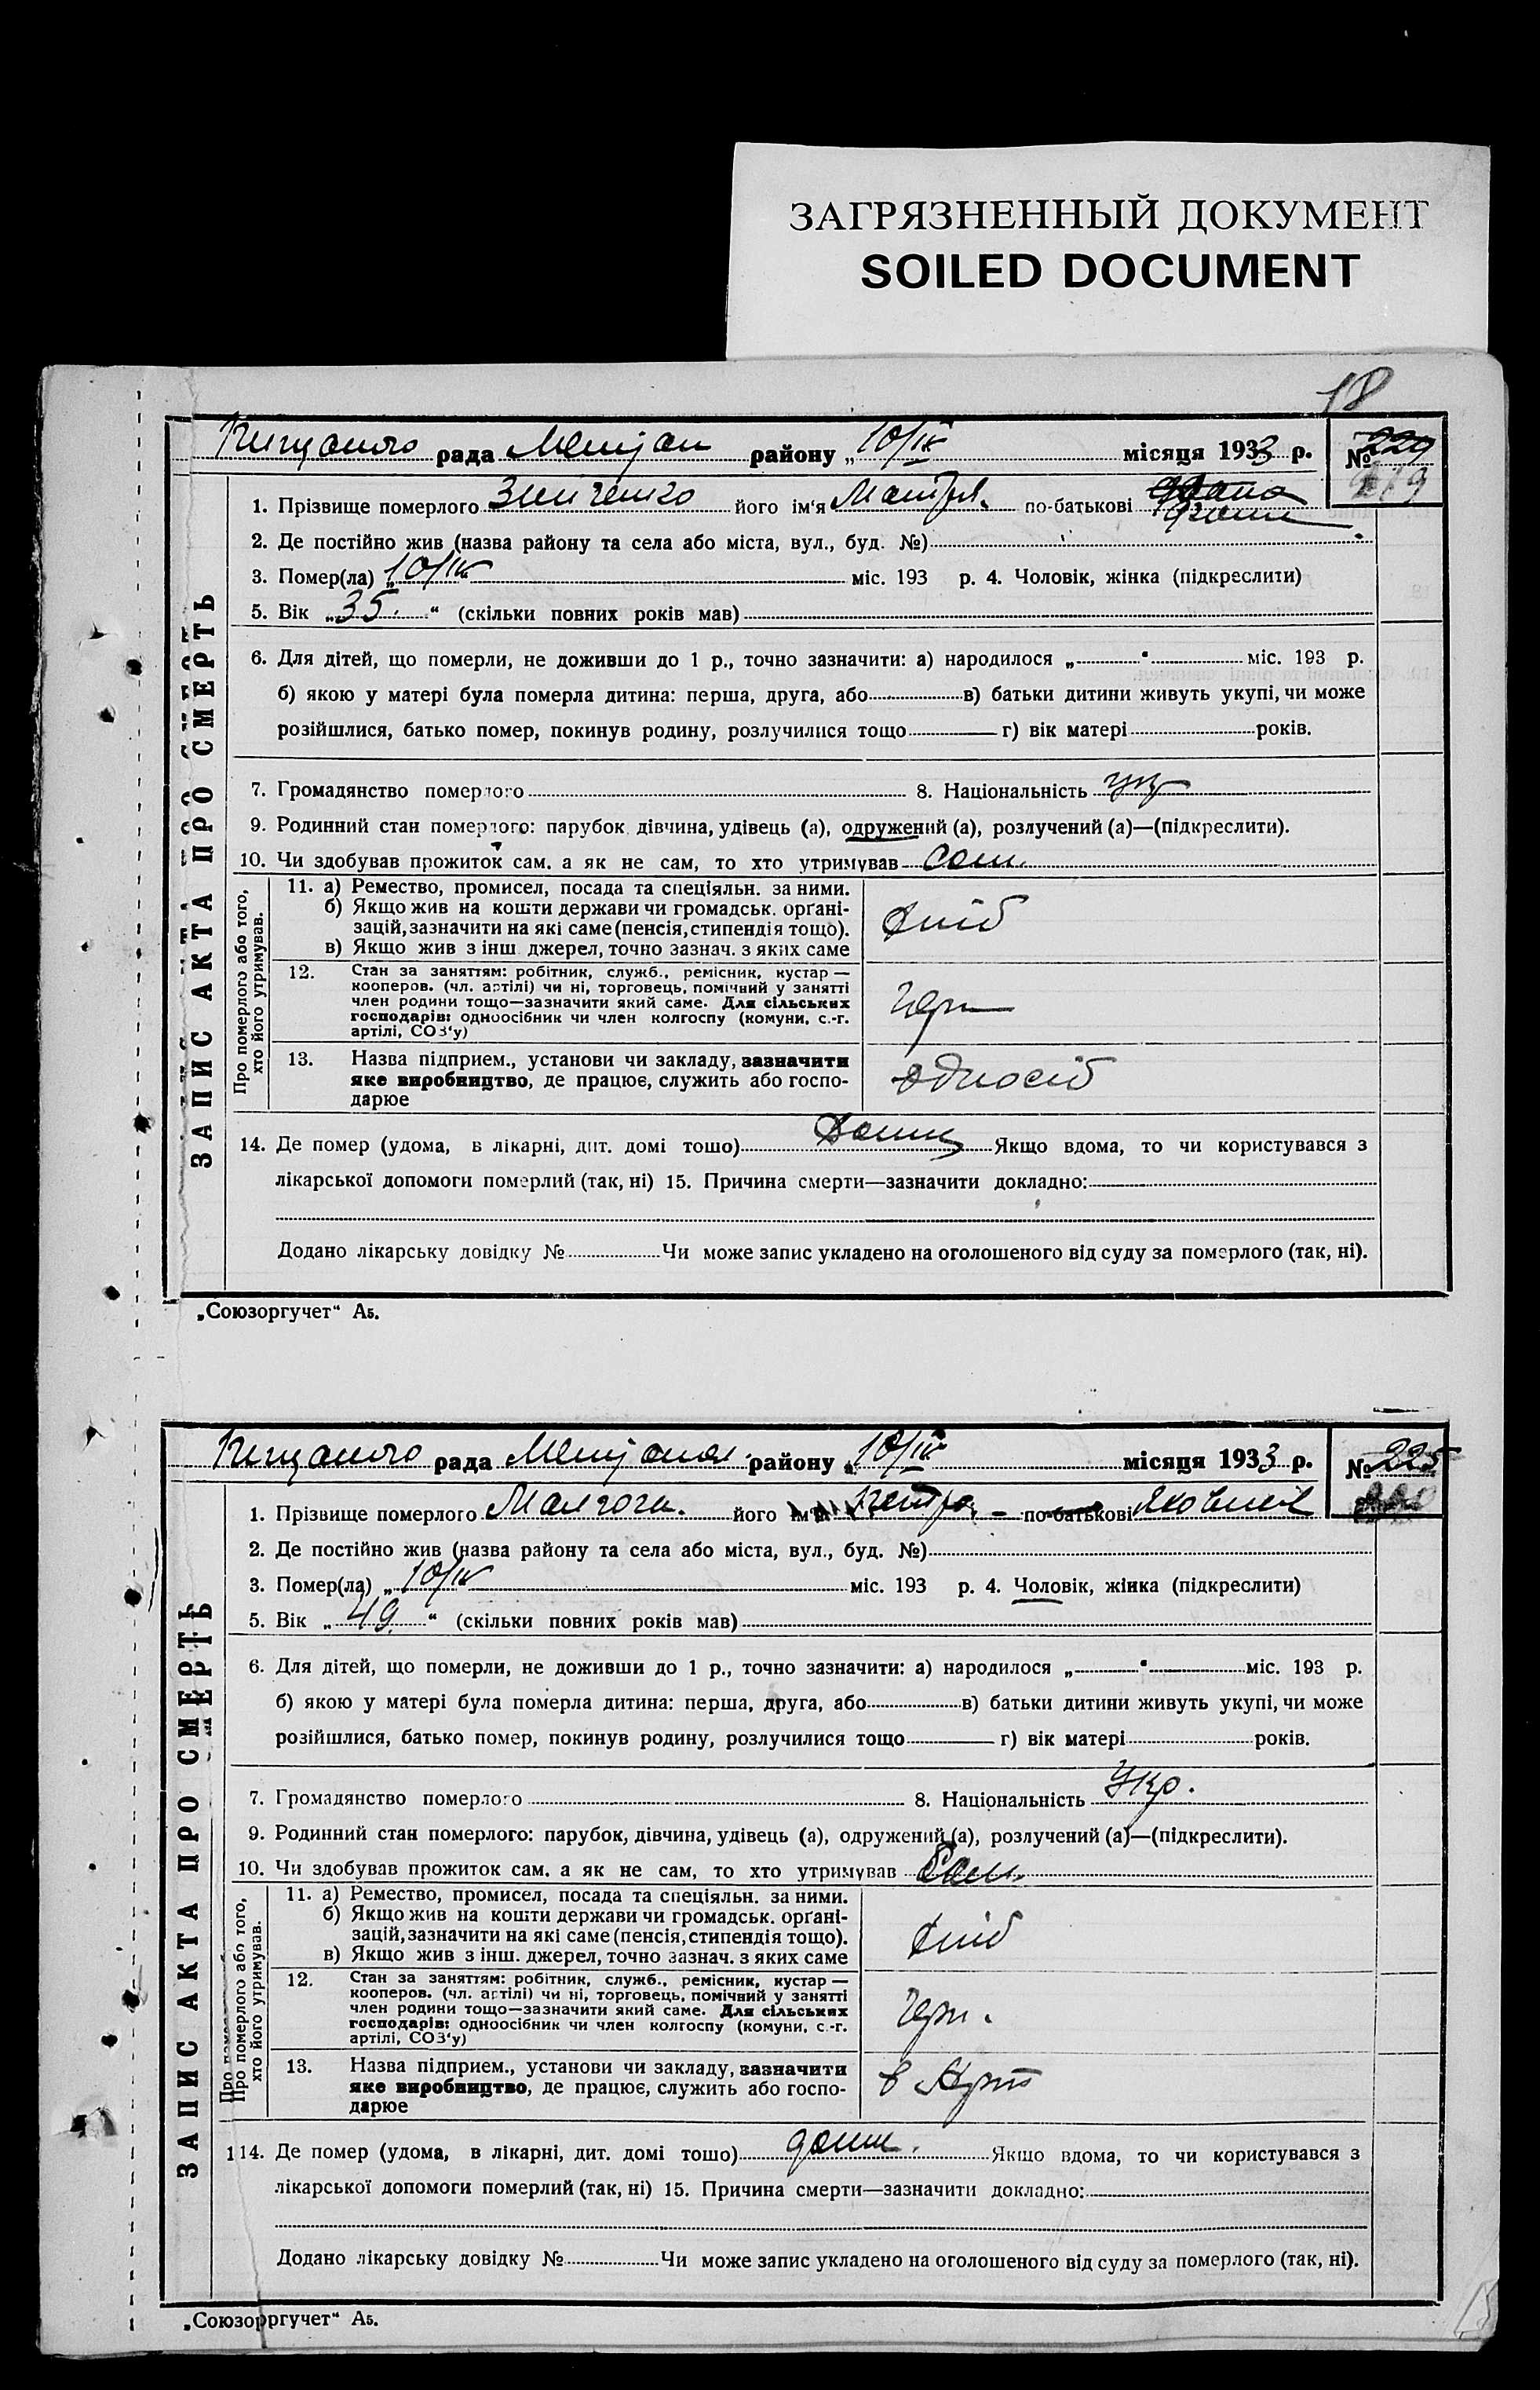 ЗАГРЯЗНЕННЫЙ ДОКУМЕНТ
SOILED DOCUMENT
18
рада району „10/IV місяця 1933 р. №
219
1. Прізвище померлого його ім'я по-батькові
2. Де постійно жив (назва району та села або міста, вул., буд. №)
3. Помер(ла) „10/IV міс. 193 р. 4. Чоловік, жінка (підкреслити)
5. Вік „35." (скільки повних років мав)
6. Для дітей, що померли, не доживши до 1 р., точно зазначити: а) народилося „ " міс. 193 р.
б) якою у матері була померла дитина: перша, друга, або в) батьки дитини живуть укупі, чи може
розійшлися, батько помер, покинув родину, розлучилися тощо г) вік матері років.
7. Громадянство померлого 8. Національність укр
9. Родинний стан померлого: парубок, дівчина, удівець (а), одружений (а), розлучений (а)—(підкреслити).
10. Чи здобував прожиток сам. а як не сам, то хто утримував сам.
Про померлого або того,
хто його утримував.
11. а) Ремество, промисел, посада та спеціяльн. за ними.
б) Якщо жив на кошти держави чи громадськ. орґані-
зацій, зазначити на які саме (пенсія, стипендія тощо).
в) Якщо жив з інш. джерел, точно зазнач. з яких саме
хліб
12. Стан за заняттям: робітник, служб., ремісник, кустар —
кооперов. (чл. артілі) чи ні, торговець, помічний у занятті
член родини тощо—зазначити який саме. Для сільських
господарів: одноосібник чи член колгоспу (комуни, с.-г.
артілі, СОЗ'у)
13. Назва підприєм., установи чи закладу, зазначити
яке виробництво, де працює, служить або госпо-
дарює
одноосіб
14. Де помер (удома, в лікарні, дит. домі тошо) Дома Якщо вдома, то чи користувався з
лікарської допомоги померлий (так, ні) 15. Причина смерти—зазначити докладно:
Додано лікарську довідку № Чи може запис укладено на оголошеного від суду за померлого (так, ні).
ЗАПИС АКТА ПРО СМЕРТЬ
„Союзоргучет" А5.
рада району „10/IV місяця 1933 р. № 225
1. Прізвище померлого його ім'я Петро по-батькові Яковлев
2. Де постійно жив (назва району та села або міста, вул., буд. №)
3. Помер(ла) „10/IV міс. 193 р. 4. Чоловік, жінка (підкреслити)
5. Вік „49." (скільки повних років мав)
6. Для дітей, що померли, не доживши до 1 р., точно зазначити: а) народилося „ " міс. 193 р.
б) якою у матері була померла дитина: перша, друга, або в) батьки дитини живуть укупі, чи може
розійшлися, батько помер, покинув родину, розлучилися тощо г) вік матері років.
7. Громадянство померлого 8. Національність Укр.
9. Родинний стан померлого: парубок, дівчина, удівець (а), одружений (а), розлучений (а)—(підкреслити).
10. Чи здобував прожиток сам. а як не сам, то хто утримував Сам.
Про померлого або того,
хто його утримував.
11. а) Ремество, промисел, посада та спеціяльн. за ними.
б) Якщо жив на кошти держави чи громадськ. орґані-
зацій, зазначити на які саме (пенсія, стипендія тощо).
в) Якщо жив з інш. джерел, точно зазнач. з яких саме
хліб
12. Стан за заняттям: робітник, служб., ремісник, кустар —
кооперов. (чл. артілі) чи ні, торговець, помічний у занятті
член родини тощо—зазначити який саме. Для сільських
господарів: одноосібник чи член колгоспу (комуни, с.-г.
артілі, СОЗ'у)
13. Назва підприєм., установи чи закладу, зазначити
яке виробництво, де працює, служить або госпо-
дарює
в Арт
14. Де помер (удома, в лікарні, дит. домі тошо) дома. Якщо вдома, то чи користувався з
лікарської допомоги померлий (так, ні) 15. Причина смерти—зазначити докладно:
Додано лікарську довідку № Чи може запис укладено на оголошеного від суду за померлого (так, ні).
ЗАПИС АКТА ПРО СМЕРТЬ
„Союзоргучет" А5.